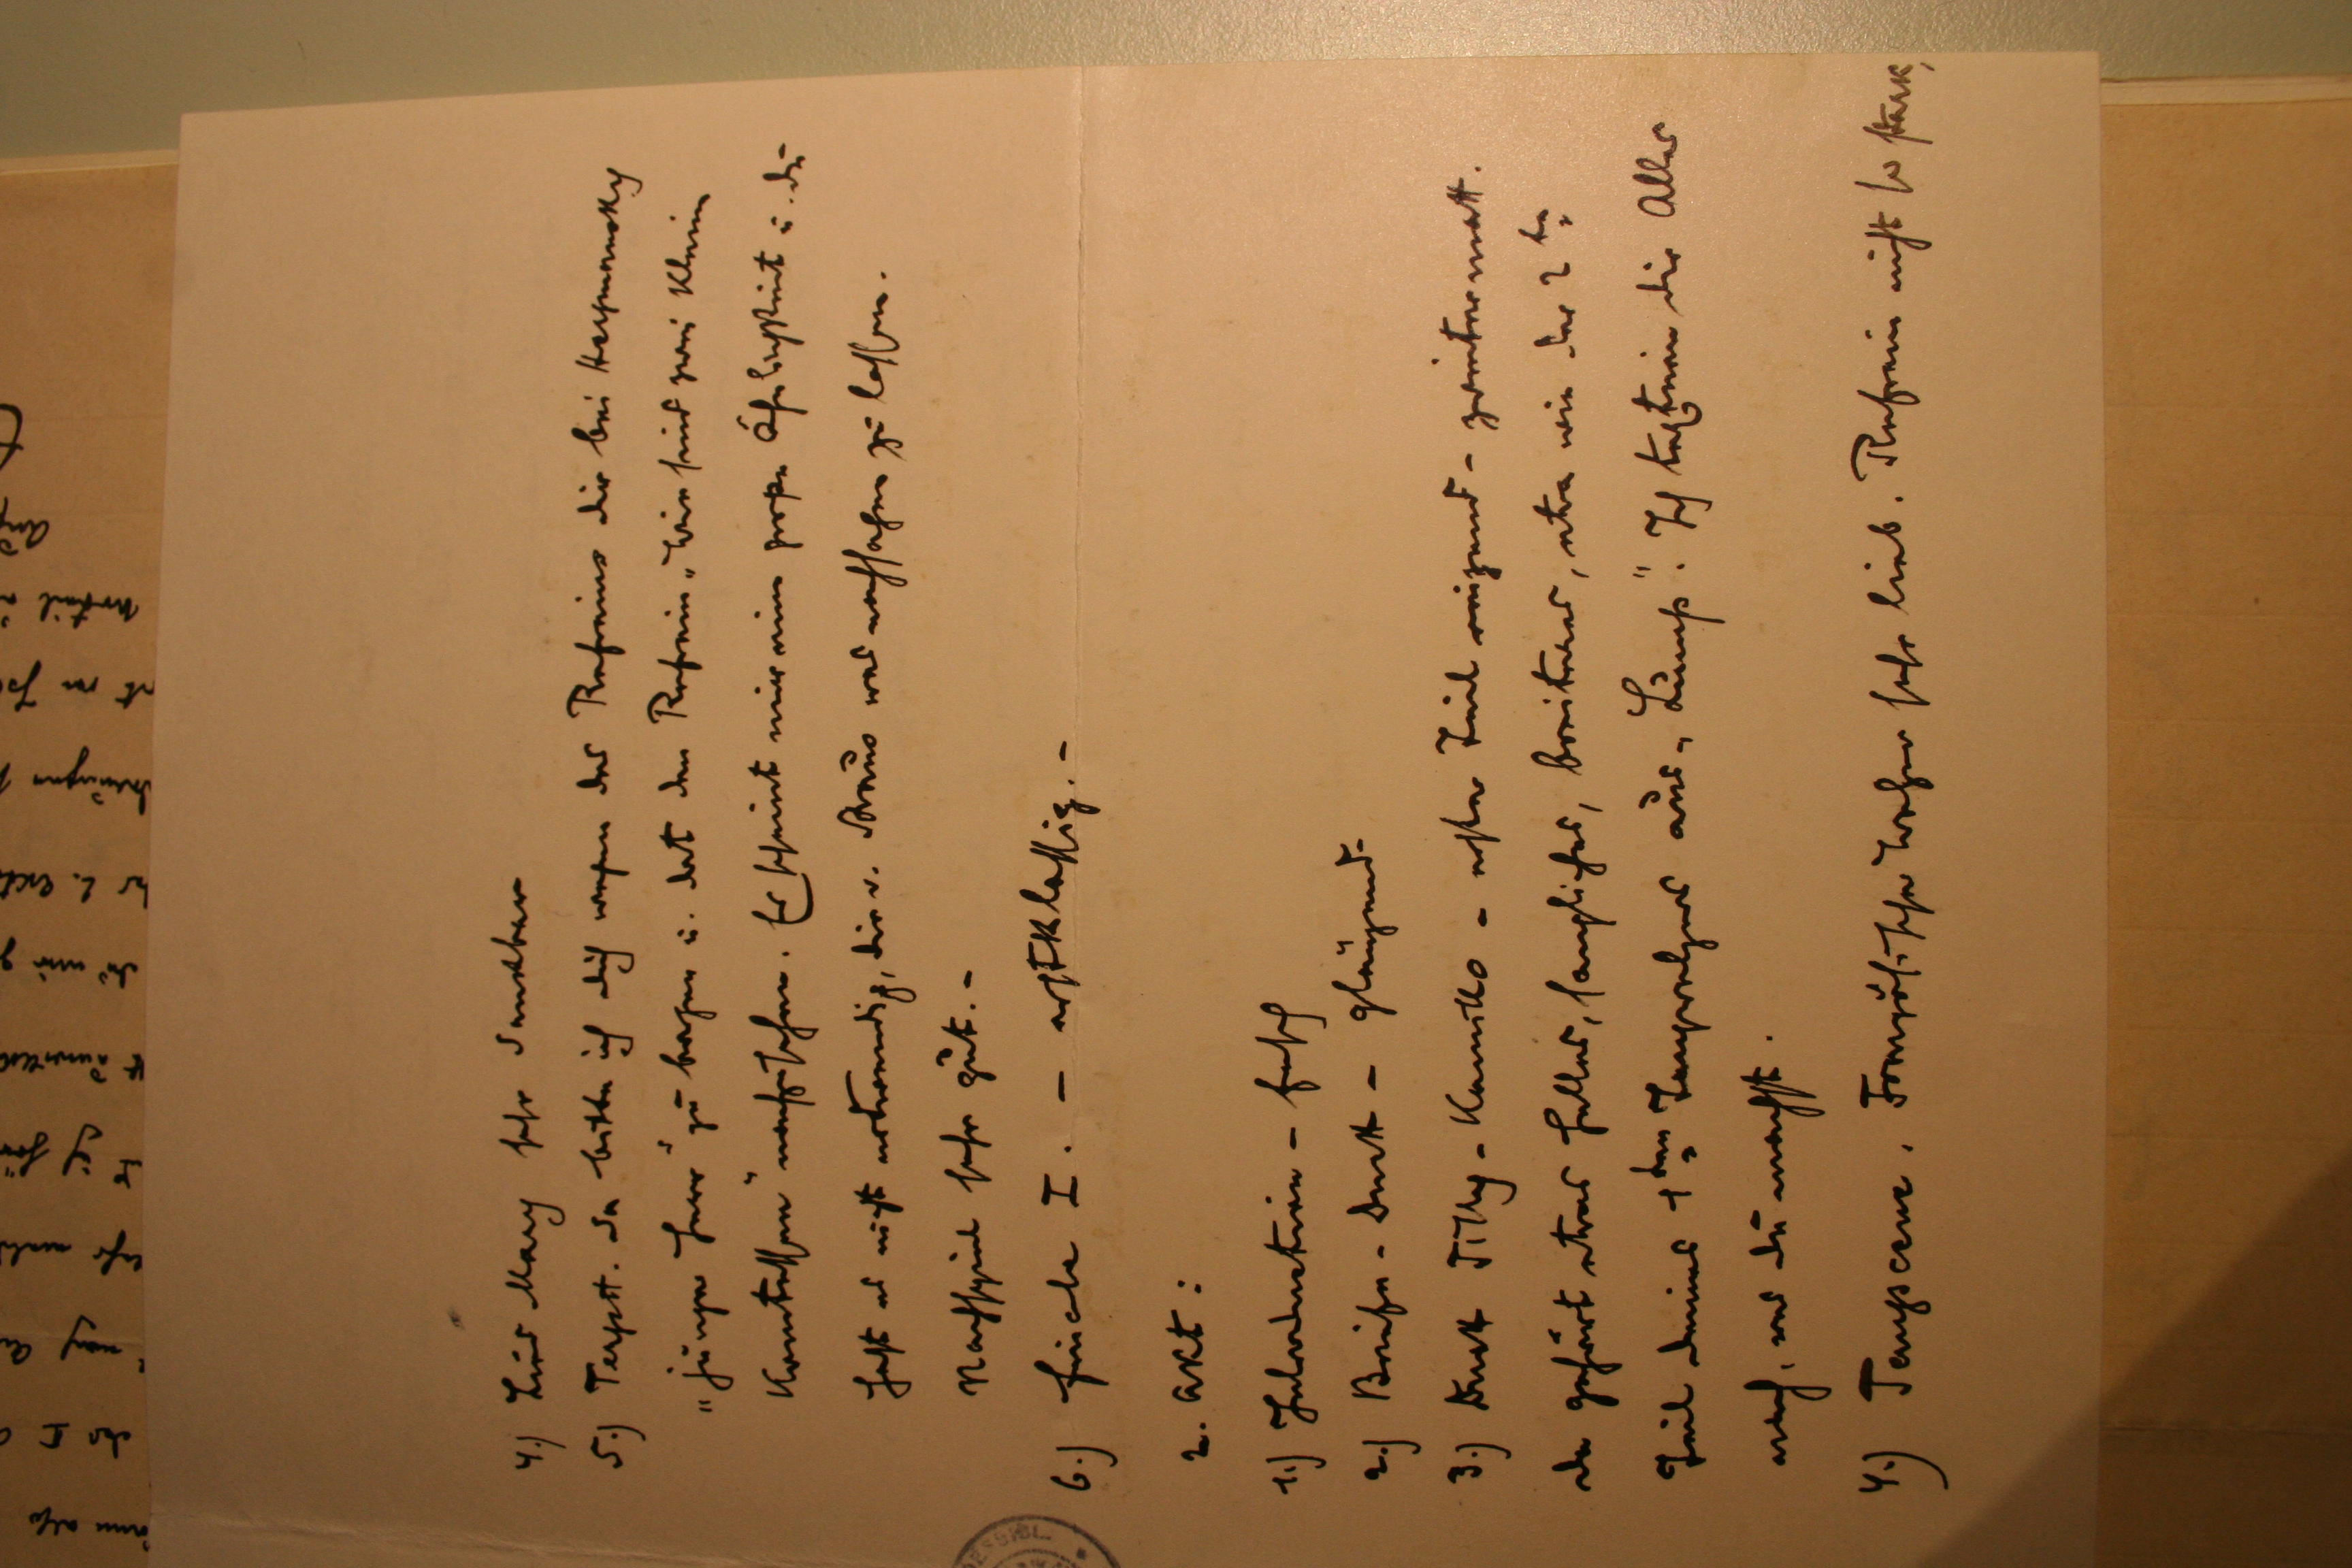 4.) Lied Mary sehr dankbar
5.) Terzett. Da bitte ich dich wegen des Refrains dir bei Herzmansky
„junger Herr" zu borgen u. dort den Refrain „Wir sind zwei kleine
Komtessen" nachzusehen. Es scheint mir eine große Ähnlichkeit u. du
hast es nicht notwendig, dir v. Straus was nachsagen zu lassen.
Nachspiel sehr gut. –
6.) Finale I. – erstklassig. –
2. Akt:
1.) Introduction – fesch
2.) Briefe-Duett – glänzend –
3.) Duett Tilly-Kamillo – erster Teil reizend – zweiter matt.
da gehört etwas helles, sangliches, breiteres, etwa wie der 2te
Teil deines 1ten Tanzwalzers aus „Lump". Ich textiere dir Alles
nach, was du machst.
4.) Tanzscene. Französischer Walzer sehr lieb. Refrain nicht so stark,